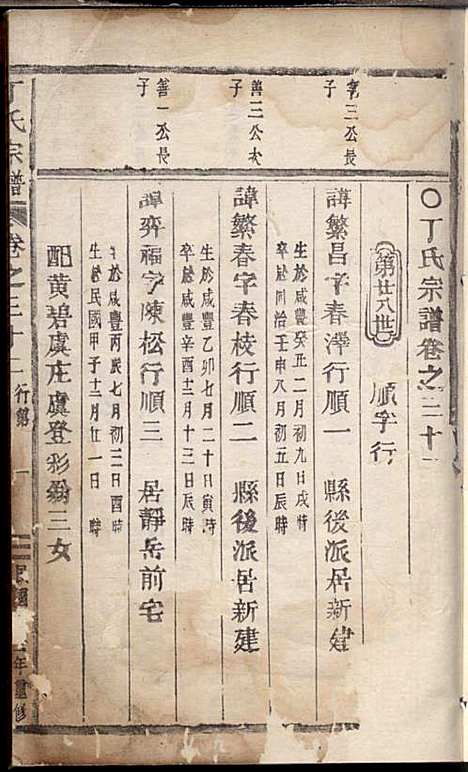 〇丁氏宗譜卷之三十
第廿八世 順字行
善三公長子
諱繁昌字春澤行順一 縣後派居新建
生於咸豐癸丑二月初九日戌時
卒於同治壬申八月初五日辰時
善三公次子
諱繁春字春枝行順二 縣後派居新建
生於咸豐乙卯七月二十日寅時
卒於咸豐辛酉十二月十三日辰時
善一公長子
諱弈福字陳松行順三 居靜岳前宅
生於咸豐丙辰七月初二日酉時
生於民國甲子十二月廿一日 時
配黄碧虞庄虞登彩女三女
丁氏宗譜 卷之三十二 行第 一 民國 年重修